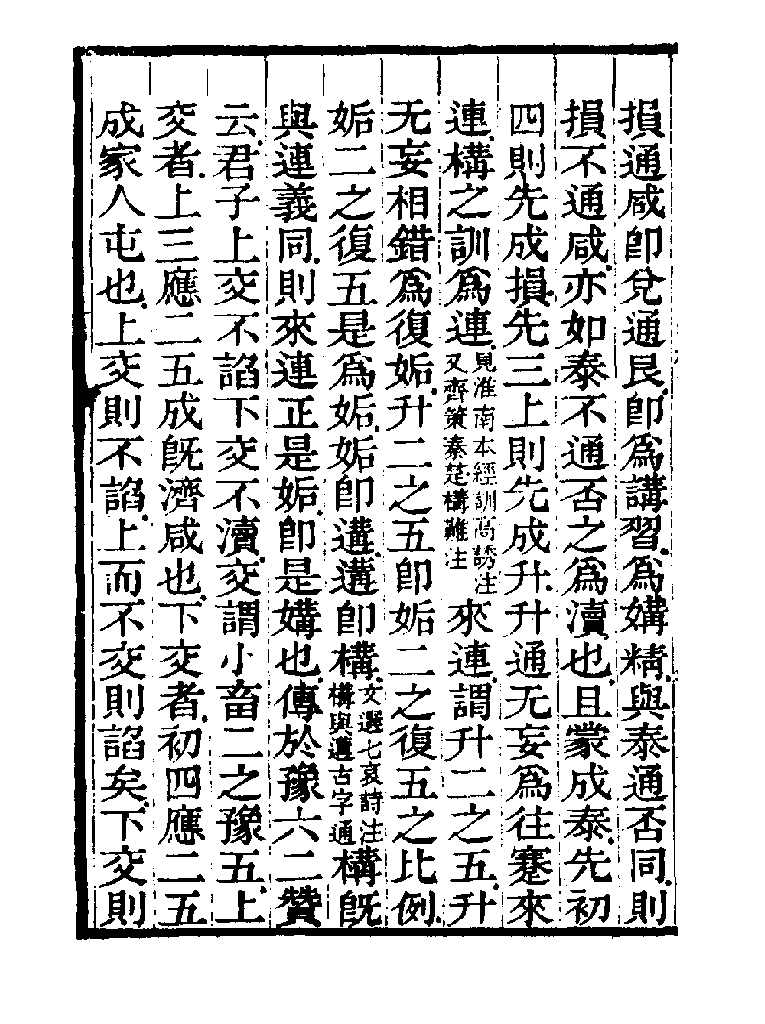 損通咸卽兌通艮卽爲講習爲媾精與泰通否同則
損不通咸亦如泰不通否之爲瀆也且蒙成泰先初
四則先成損先三上則先成升升通无妄爲往蹇來
連構之訓爲連見淮南本經訓高誘注又齊策秦楚構難注來連謂升二之五升
无妄相錯爲復姤升二之五卽姤二之復五之比例
姤二之復五是爲姤姤卽遘遘卽構文選七哀詩注構與遘古字通構旣
與連義同則來連正是姤卽是媾也傳於豫六二贊
云君子上交不諂下交不瀆交謂小畜二之豫五上
交者上三應二五成旣濟咸也下交者初四應二五
成家人屯也上交則不諂上而不交則諂矣下交則